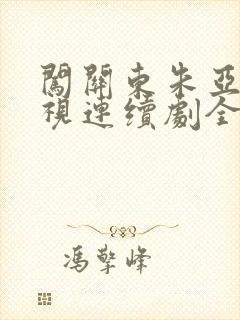 闖關東朱亞
視連續劇全
馮擎峰